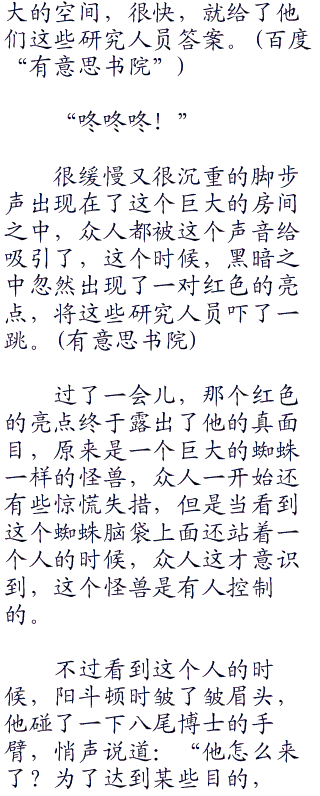 大的空间，很快，就给了他
们这些研究人员答案。(百度
“有意思书院”)
“咚咚咚！”
很缓慢又很沉重的脚步
声出现在了这个巨大的房间
之中，众人都被这个声音给
吸引了，这个时候，黑暗之
中忽然出现了一对红色的亮
点，将这些研究人员吓了一
跳。(有意思书院)
过了一会儿，那个红色
的亮点终于露出了他的真面
目，原来是一个巨大的蜘蛛
一样的怪兽，众人一开始还
有些惊慌失措，但是当看到
这个蜘蛛脑袋上面还站着一
个人的时候，众人这才意识
到，这个怪兽是有人控制
的。
不过看到这个人的时
候，阳斗顿时皱了皱眉头，
他碰了一下八尾博士的手
臂，悄声说道：“他怎么来
了？为了达到某些目的，